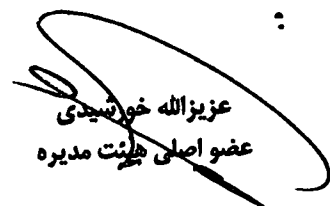 عزیزالله خورشیدی
عضو اصلی هیئت مدیره